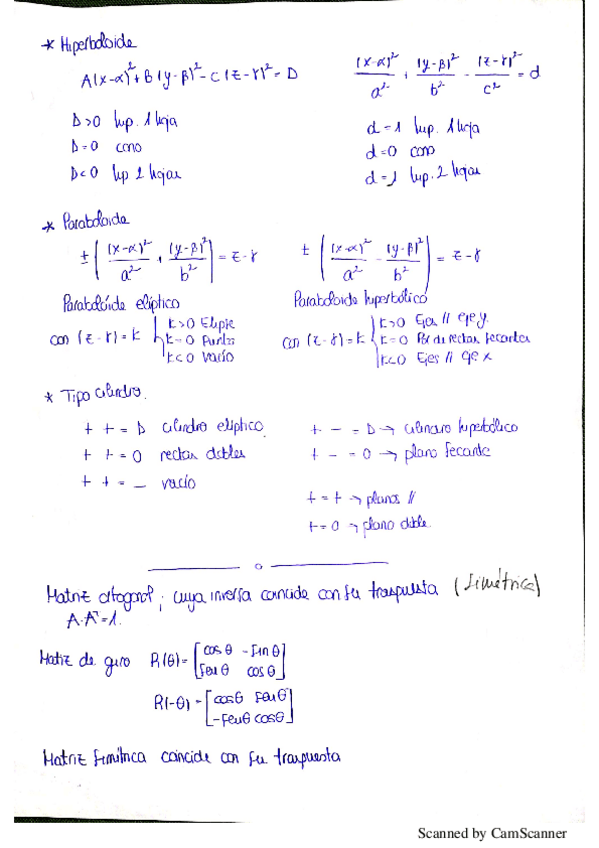 * Hiperboloide
A(x-α)²+B(y-β)²-C(z-γ)²=D
(x-α)²/a² + (y-β)²/b² - (z-γ)²/c² = d
D>0 hip. 1 hoja
D=0 cono
D<0 hip 2 hojas
d=1 hip. 1 hoja
d=0 cono
d=-1 hip. 2 hojas
* Paraboloide
±((x-α)²/a² + (y-β)²/b²) = z-γ
±((x-α)²/a² - (y-β)²/b²) = z-γ
Paraboloide elíptico
con (z-γ)=k { k>0 Elipse
k=0 Punto
k<0 vacío
Paraboloide hiperbólico
con (z-γ)=k { k>0 Ejes // eje y.
k=0 Par de rectas secantes
k<0 Ejes // eje x
* Tipo cilindro.
+ + = D cilindro elíptico
+ + = 0 rectas dobles
+ + = - vacío
+ - = D → cilindro hiperbólico
+ - = 0 → plano secante
+ = + → planos //
+ = 0 → plano doble.
Matriz ortogonal; cuya inversa coincide con su traspuesta (simétrica)
A·Aᵗ=1.
Matriz de giro R(θ)= [cos θ -sin θ
sen θ cos θ]
R(-θ)= [cosθ senθ
-senθ cosθ]
Matriz simétrica coincide con su traspuesta
Scanned by CamScanner